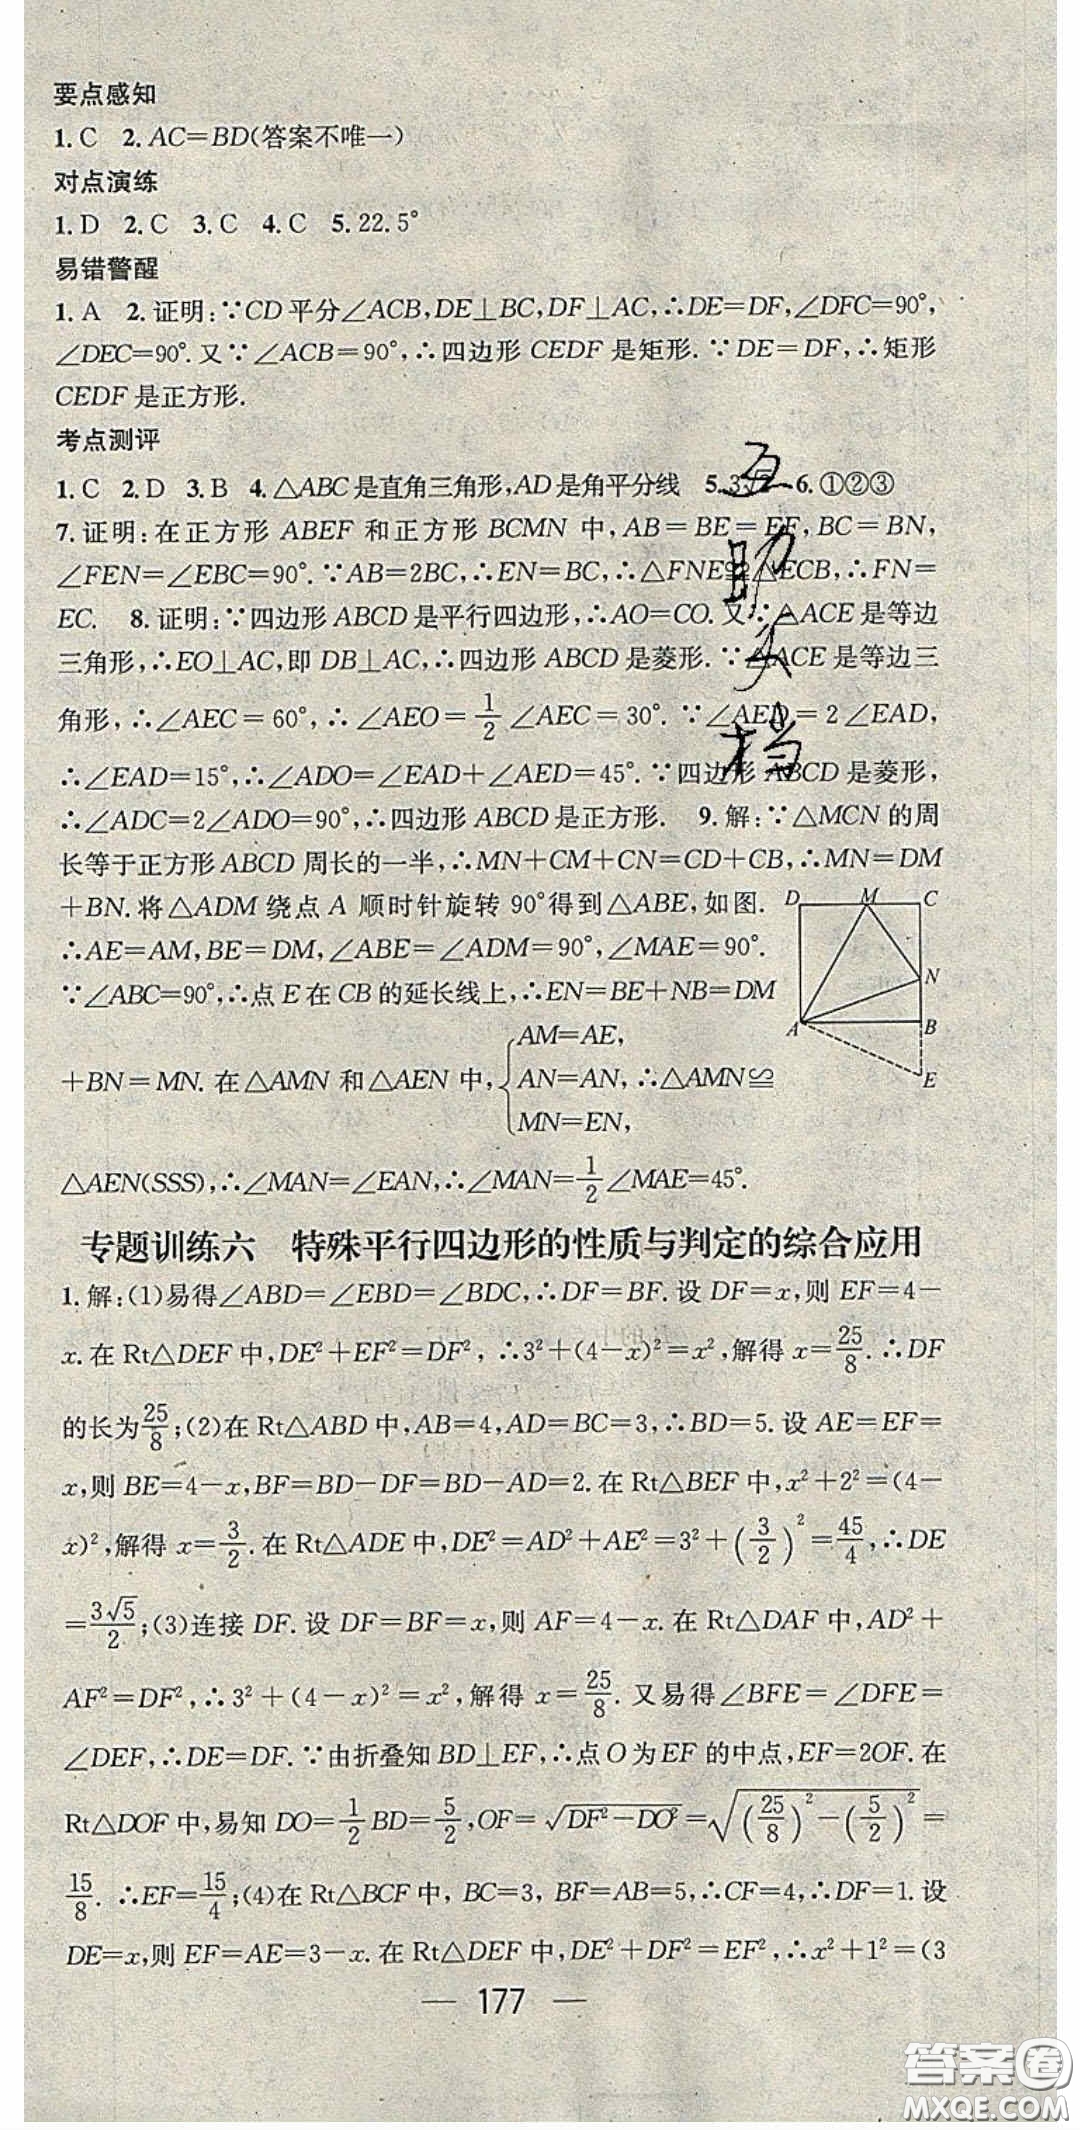 要点感知
1. C 2. AC=BD(答案不唯一)
对点演练
1. D 2. C 3. C 4. C 5. 22.5°
易错警醒
1. A 2. 证明:∵CD平分∠ACB,DE⊥BC,DF⊥AC,∴DE=DF,∠DFC=90°,
∠DEC=90°.又∵∠ACB=90°,∴四边形CEDF是矩形.∵DE=DF,∴矩形
CEDF是正方形.
考点测评
1. C 2. D 3. B 4. △ABC是直角三角形,AD是角平分线 5. 6. ①②③
7. 证明:在正方形ABEF和正方形BCMN中,AB=BE=EF,BC=BN,
∠FEN=∠EBC=90°.∵AB=2BC,∴EN=BC,∴△FNE≌△ECB,∴FN=
EC. 8. 证明:∵四边形ABCD是平行四边形,∴AO=CO.又∵△ACE是等边
三角形,∴EO⊥AC,即DB⊥AC,∴四边形ABCD是菱形.∵△ACE是等边三
角形,∴∠AEC=60°,∴∠AEO=1/2∠AEC=30°.∵∠AED=2∠EAD,
∴∠EAD=15°,∴∠ADO=∠EAD+∠AED=45°.∵四边形ABCD是菱形,
∴∠ADC=2∠ADO=90°,∴四边形ABCD是正方形. 9. 解:∵△MCN的周
长等于正方形ABCD周长的一半,∴MN+CM+CN=CD+CB,∴MN=DM
+BN.将△ADM绕点A顺时针旋转90°得到△ABE,如图.
∴AE=AM,BE=DM,∠ABE=∠ADM=90°,∠MAE=90°.
∵∠ABC=90°,∴点E在CB的延长线上,∴EN=BE+NB=DM
+BN=MN.在△AMN和△AEN中,{AM=AE,
AN=AN,∴△AMN≌
MN=EN,
△AEN(SSS),∴∠MAN=∠EAN,∴∠MAN=1/2∠MAE=45°.
D M C
N
A B
E
专题训练六 特殊平行四边形的性质与判定的综合应用
1. 解:(1)易得∠ABD=∠EBD=∠BDC,∴DF=BF.设DF=x,则EF=4-
x.在Rt△DEF中,DE²+EF²=DF²,∴3²+(4-x)²=x²,解得x=25/8.∴DF
的长为25/8;(2)在Rt△ABD中,AB=4,AD=BC=3,∴BD=5.设AE=EF=
x,则BE=4-x,BF=BD-DF=BD-AD=2.在Rt△BEF中,x²+2²=(4-
x)²,解得x=3/2.在Rt△ADE中,DE²=AD²+AE²=3²+(3/2)²=45/4,∴DE
=3√5/2;(3)连接DF.设DF=BF=x,则AF=4-x.在Rt△DAF中,AD²+
AF²=DF²,∴3²+(4-x)²=x²,解得x=25/8.又易得∠BFE=∠DFE=
∠DEF,∴DE=DF.∵由折叠知BD⊥EF,∴点O为EF的中点,EF=2OF.在
Rt△DOF中,易知DO=1/2BD=5/2,OF=√(DF²-DO²)=√((25/8)²-(5/2)²)=
15/8.∴EF=15/4;(4)在Rt△BCF中,BC=3,BF=AB=5,∴CF=4,∴DF=1.设
DE=x,则EF=AE=3-x.在Rt△DEF中,DE²+DF²=EF²,∴x²+1²=(3
— 177 —
互
助
文
档
答案圈
MXQE.COM